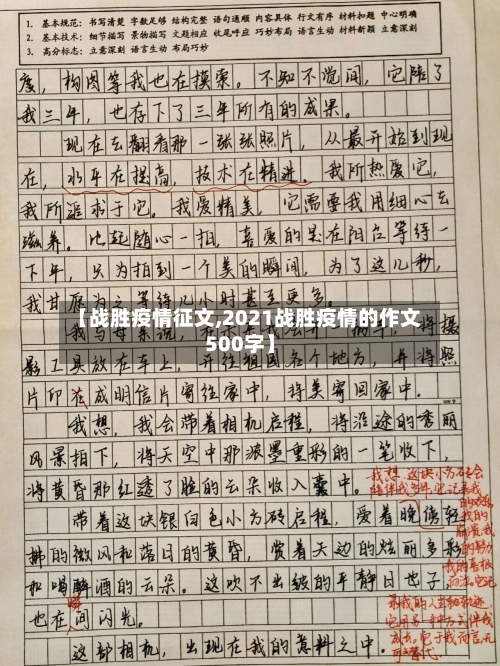 1. 基本规范：书写清楚 字数足够 结构完整 语句通顺 内容具体 行文有序 材料扣题 中心明确
2. 基本技术：细节描写 景物描写 文题相应 收尾呼应 巧妙布局 语言生动 材料新颖 立意深刻
3. 高分标志：立意深刻 语言生动 布局巧妙
度，构图等我也在摸索。不知不觉间，它陪了
我三年，也存下了三年所有的成果。
现在去翻看那一张张照片，从最开始到现
在，水平在提高，技术在精进。我所热爱它，
我所追求于它。我爱精美，它需要我用细心去
滋养。比起随心一拍，喜爱的是在阳台等待一
下午，只为拍到一个美的瞬间，为了这几秒，
我甘愿为之等待几小时甚至更多。
【战胜疫情征文,2021战胜疫情的作文
500字】
影工具放在车上，开往祖国各个地方，并将照
片印在成明信片寄往家中，将美寄回家中。
我想，我会带着相机启程，将沿途的秀丽
风景拍下，将天空中那浓墨重彩的一笔收下，
将黄昏那红透了脸的云朵收入囊中。
带着这块银白色小方砖启程，爱着晚傍轻
拂的微风和落日的黄昏，赏着天边的炫丽多彩
和喝醉酒的云朵。这吹不出皱的平静日也子，
也在间闪光。
瞬
这部相机，出现在我的意料之中。
我想，这块小方砖会